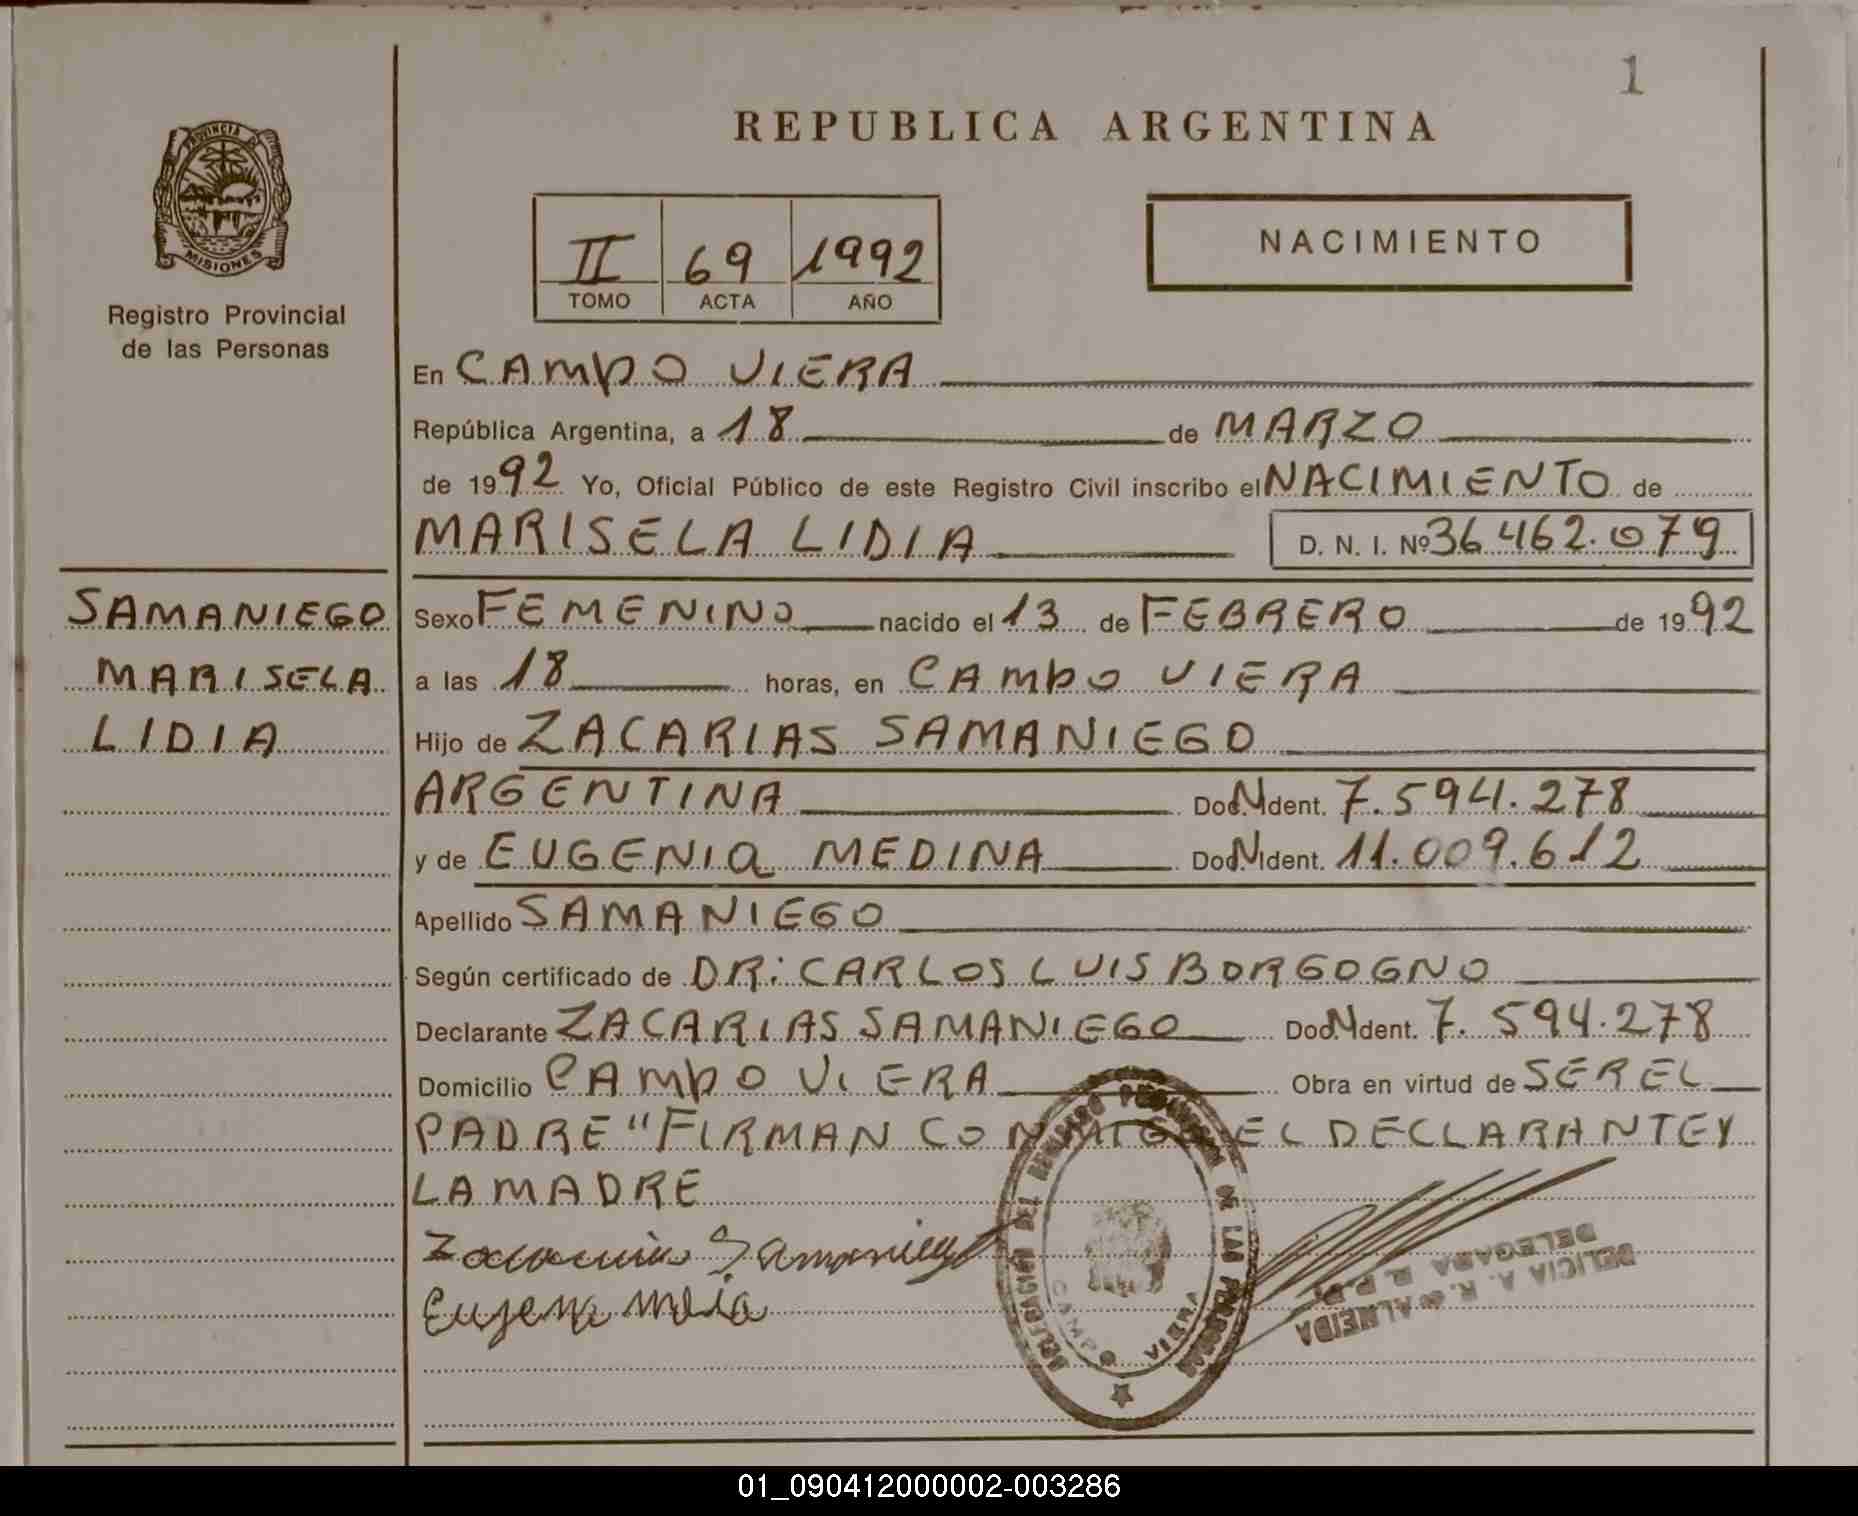 1
REPUBLICA ARGENTINA
PROVINCIA D
MISIONES
Registro Provincial
de las Personas
II 69 1992
TOMO ACTA AÑO
NACIMIENTO
En CAMPO VIERA
República Argentina, a 18 de MARZO
de 1992 Yo, Oficial Público de este Registro Civil inscribo el NACIMIENTO de
MARISELA LIDIA D. N. I. Nº 36.462.079
SAMANIEGO
MARISELA
LIDIA
Sexo FEMENINO nacido el 13 de FEBRERO de 1992
a las 18 horas, en CAMPO VIERA
Hijo de ZACARIAS SAMANIEGO
ARGENTINA Doc. N Ident. 7.594.278
y de EUGENIA MEDINA Doc. N Ident. 11.009.612
Apellido SAMANIEGO
Según certificado de DR: CARLOS LUIS BORGOGNO
Declarante ZACARIAS SAMANIEGO Doc. N Ident. 7.594.278
Domicilio CAMPO VIERA Obra en virtud de SER EL
PADRE "FIRMAN CONMIGO EL DECLARANTE Y
LA MADRE
Zacarias Samaniego
Eugenia
DELEGACION DEL REGISTRO PROVINCIAL DE LAS PERSONAS
CAMPO VIERA
DELICIA A. R. de ALMEIDA
DELEGADA R. P. P.
01_090412000002-003286